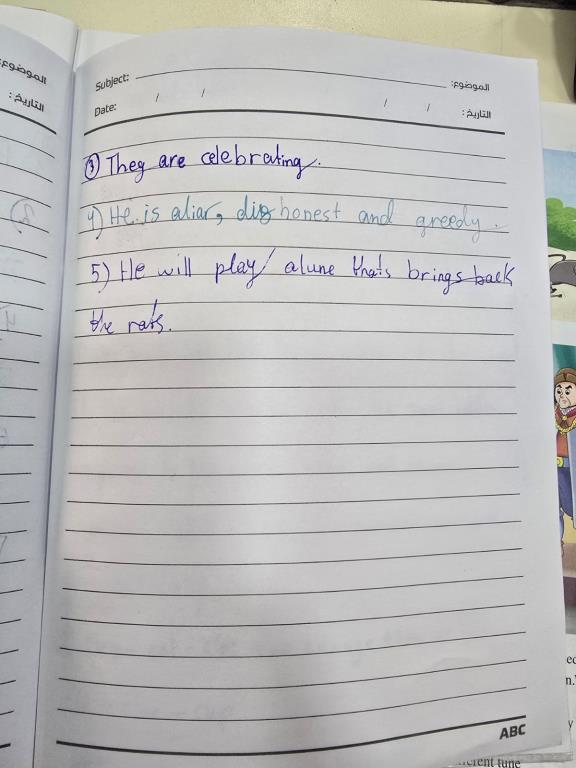 Subject:
الموضوع:
Date: / /
/ / التاريخ:
الموضوع:
التاريخ:
3) They are celebrating.
4) He is aliar, dishonest and greedy.
5) He will play alune thats brings back
the rats.
ABC
erent tune